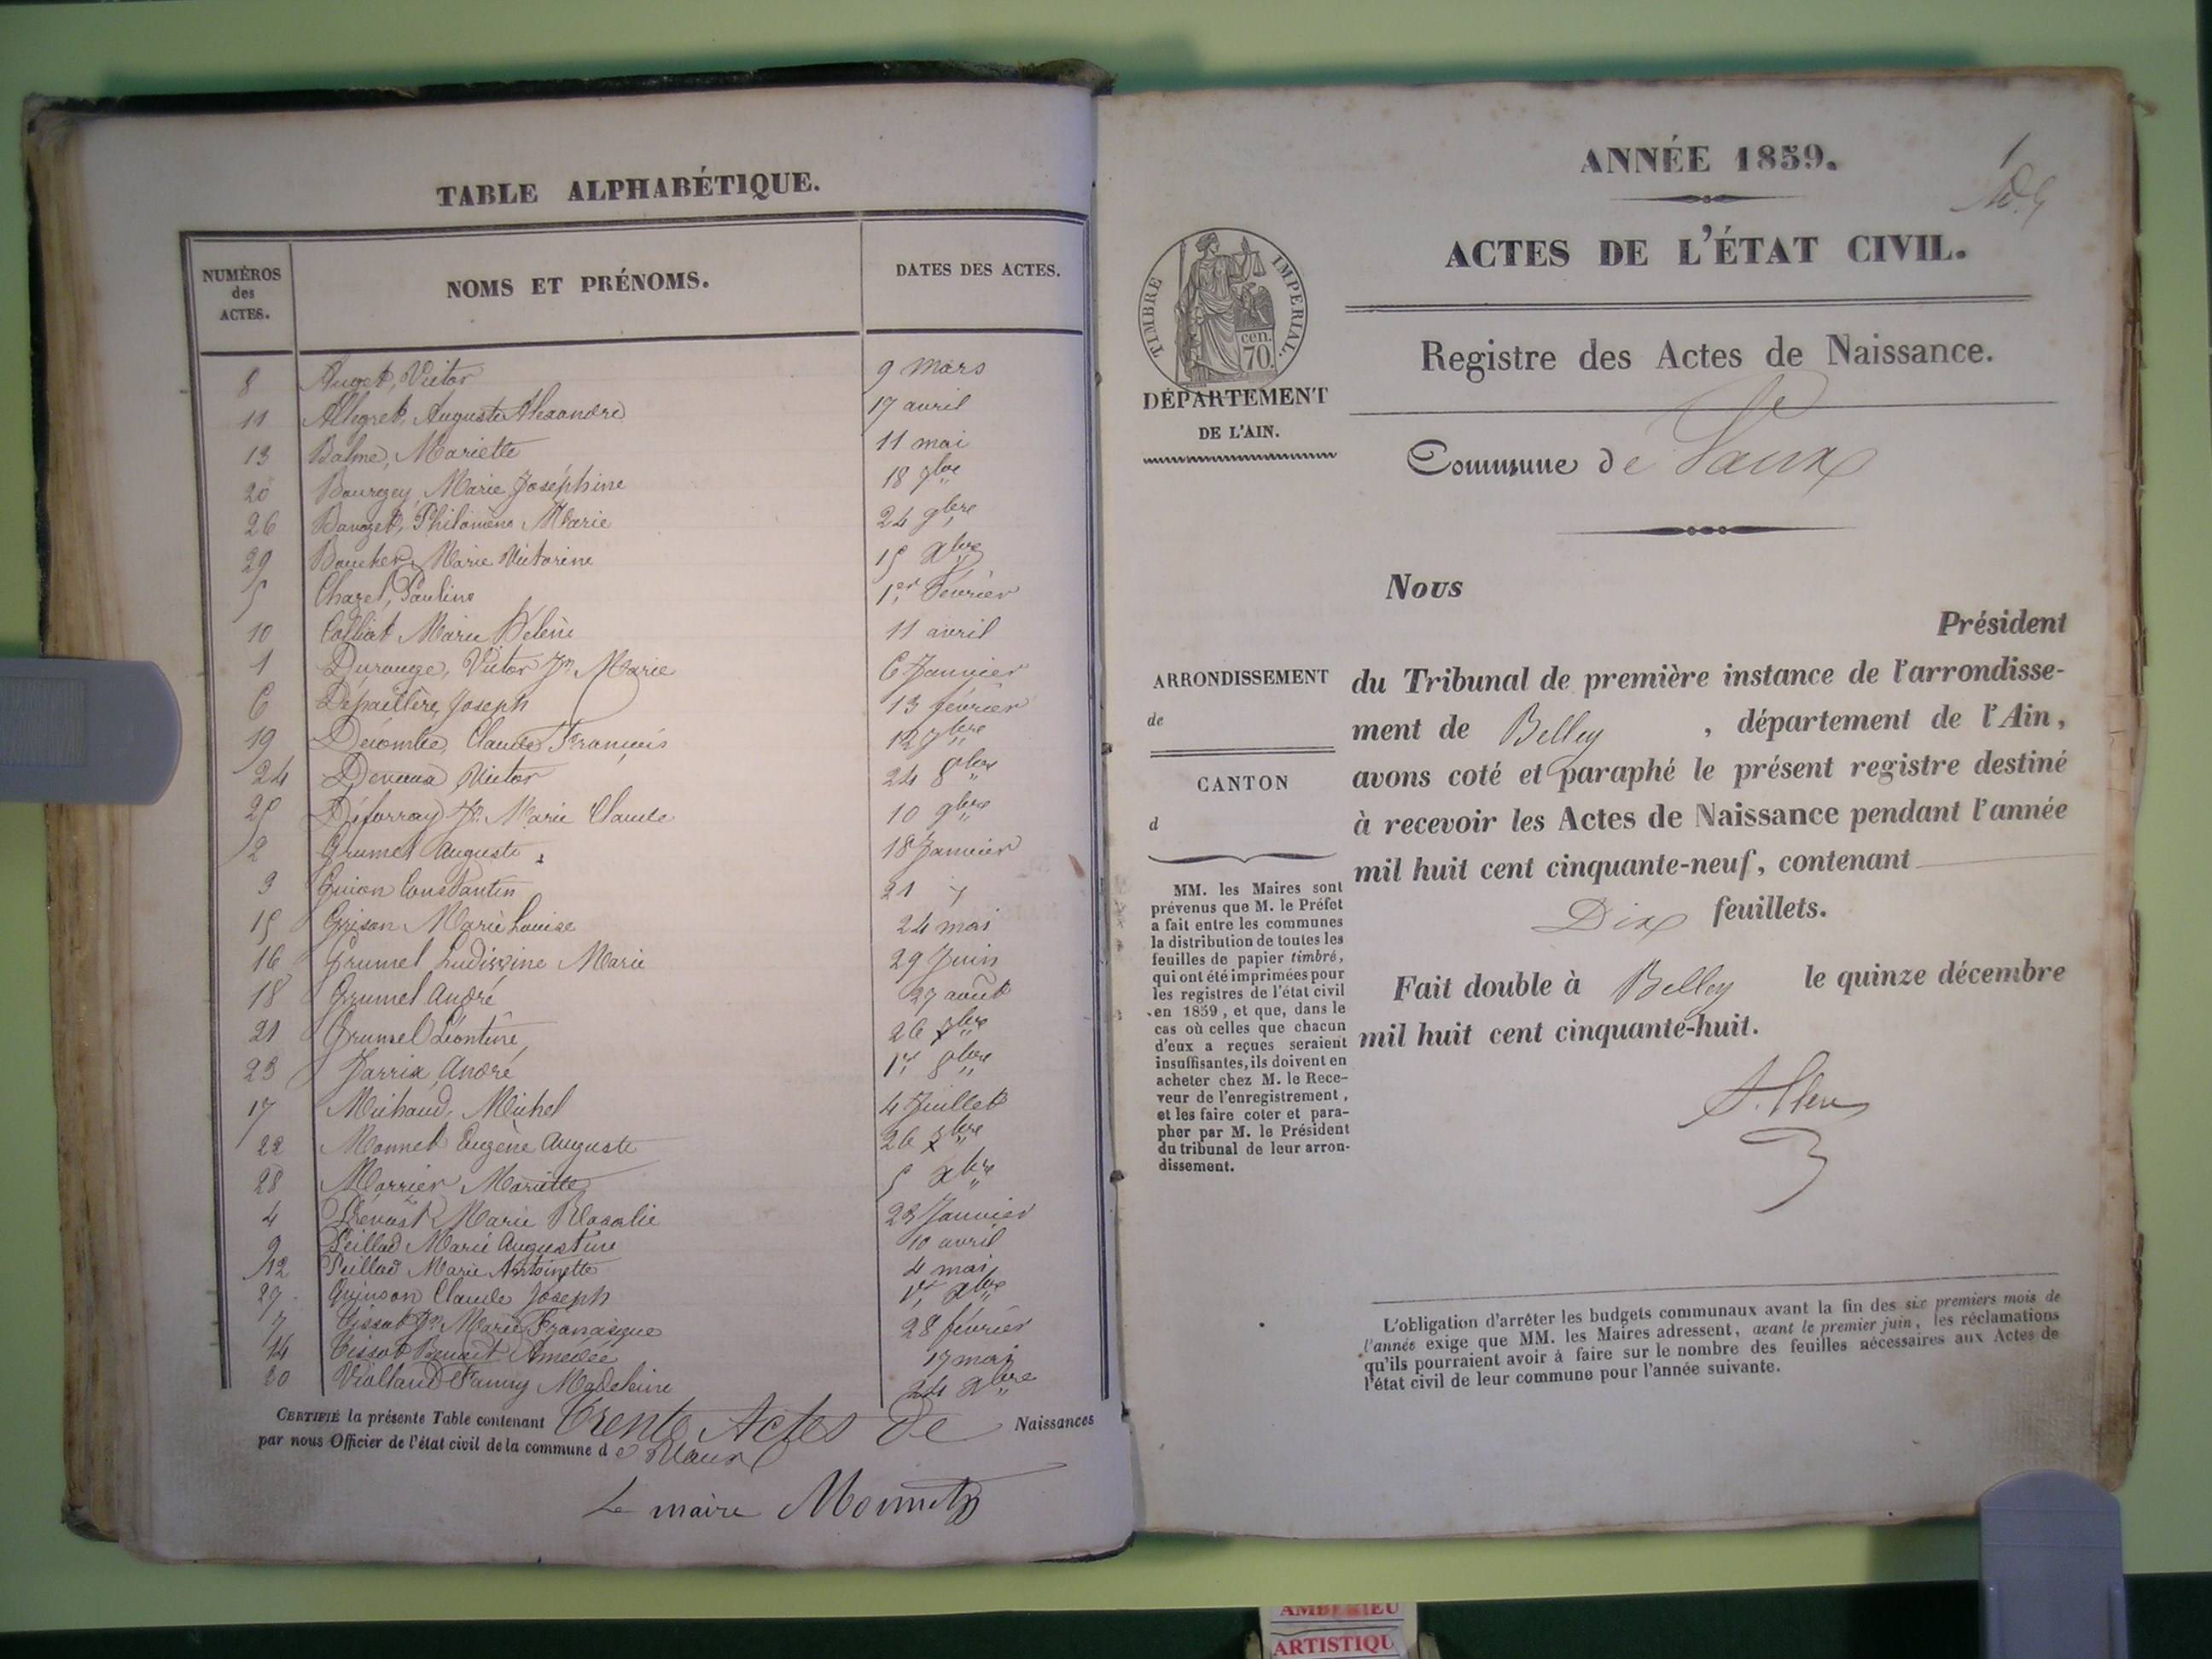 TABLE ALPHABÉTIQUE.
NUMÉROS
des
ACTES.
NOMS ET PRÉNOMS.
DATES DES ACTES.
8 Auget, Victor 9 mars
11 Allegret, Auguste Alexandre 17 avril
13 Balme, Mariette 11 mai
20 Bourgey, Marie Joséphine 18 7bre
26 Philomène Marie 24 9bre
29 Boucher, Marie Victorine 15 Xbre
5 Chazel, Pauline 1er Février
10 Colliat Marie Hélène 11 avril
1 Durouge, Victor Jn Marie 6 Janvier
6 Dépaillère, Joseph 13 février
19 Décombe, Claude François 12 7bre
24 Devaux Victor 24 8bre
25 Déforray Jn Marie Claude 10 9bre
2 Grumel Auguste 18 Janvier
3 Guion Constantin 21 "
15 Grison Marie Louise 24 mai
16 Grumel Ludivine Marie 29 Juin
18 Grumel André 27 août
21 Grumel Léontine 26 7bre
23 Jarrix, André 1er 8bre
17 Michaud, Michel 4 Juillet
22 Monnet Eugène Auguste 26 7bre
28 Morrier Mariette 5 Xbre
4 Prévost Marie Rosalie 23 Janvier
9 Peillod Marie Augustine 10 avril
12 Peillod Marie Antoinette 4 mai
27 Quinson Claude Joseph 1er Xbre
7 Tissot Jn Marie Franc̩isque 28 février
14 Tissot Benoit Amédée 17 mai
30 Vialland Fanny Madeleine 24 Xbre
CERTIFIÉ la présente Table contenant Trente Actes de Naissances
par nous Officier de l'état civil de la commune de Vaux
Le maire Monnet
1
ANNÉE 1859.
ACTES DE L'ÉTAT CIVIL.
TIMBRE IMPERIAL.
cen.
70.
DÉPARTEMENT
DE L'AIN.
Registre des Actes de Naissance.
Commune de Vaux
Nous
Président
ARRONDISSEMENT
de
CANTON
d
du Tribunal de première instance de l'arrondisse-
ment de Belley, département de l'Ain,
avons coté et paraphé le présent registre destiné
à recevoir les Actes de Naissance pendant l'année
mil huit cent cinquante-neuf, contenant
Dix feuillets.
Fait double à Belley le quinze décembre
mil huit cent cinquante-huit.
MM. les Maires sont
prévenus que M. le Préfet
a fait entre les communes
la distribution de toutes les
feuilles de papier timbré,
qui ont été imprimées pour
les registres de l'état civil
en 1859, et que, dans le
cas où celles que chacun
d'eux a reçues seraient
insuffisantes, ils doivent en
acheter chez M. le Rece-
veur de l'enregistrement,
et les faire coter et para-
pher par M. le Président
du tribunal de leur arron-
dissement.
L'obligation d'arrêter les budgets communaux avant la fin des six premiers mois de
l'année exige que MM. les Maires adressent, avant le premier juin, les réclamations
qu'ils pourraient avoir à faire sur le nombre des feuilles nécessaires aux Actes de
l'état civil de leur commune pour l'année suivante.
AMBERIEU
ARTISTIQU